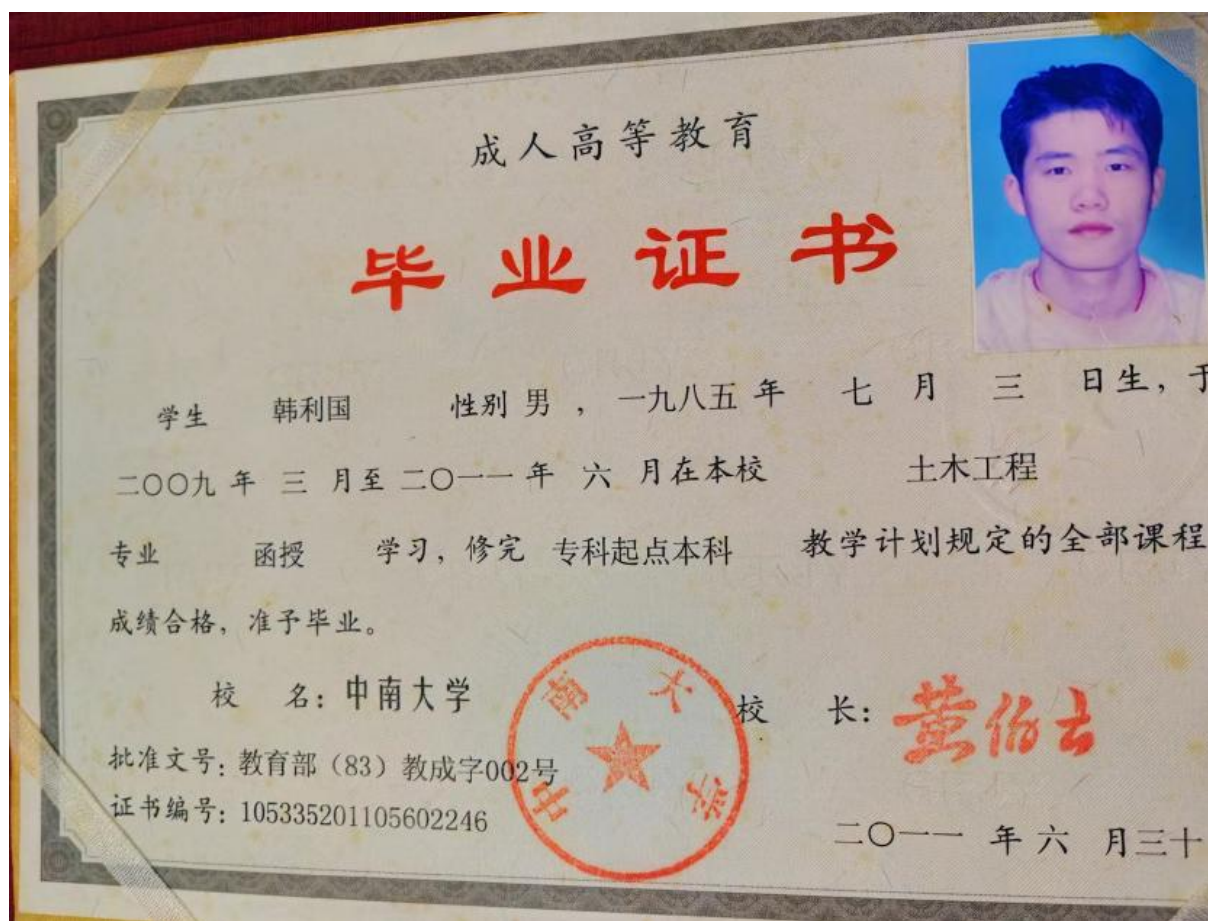 成人高等教育
毕业证书
学生 韩利国 性别 男 ， 一九八五 年 七 月 三 日生，于
二〇〇九 年 三 月至 二〇一一 年 六 月在本校 土木工程
专业 函授 学习，修完 专科起点本科 教学计划规定的全部课程
成绩合格，准予毕业。
校 名：中南大学 校 长：黄伯云
批准文号：教育部（83）教成字002号
证书编号：105335201105602246
二〇一一 年 六 月三十
中南大学